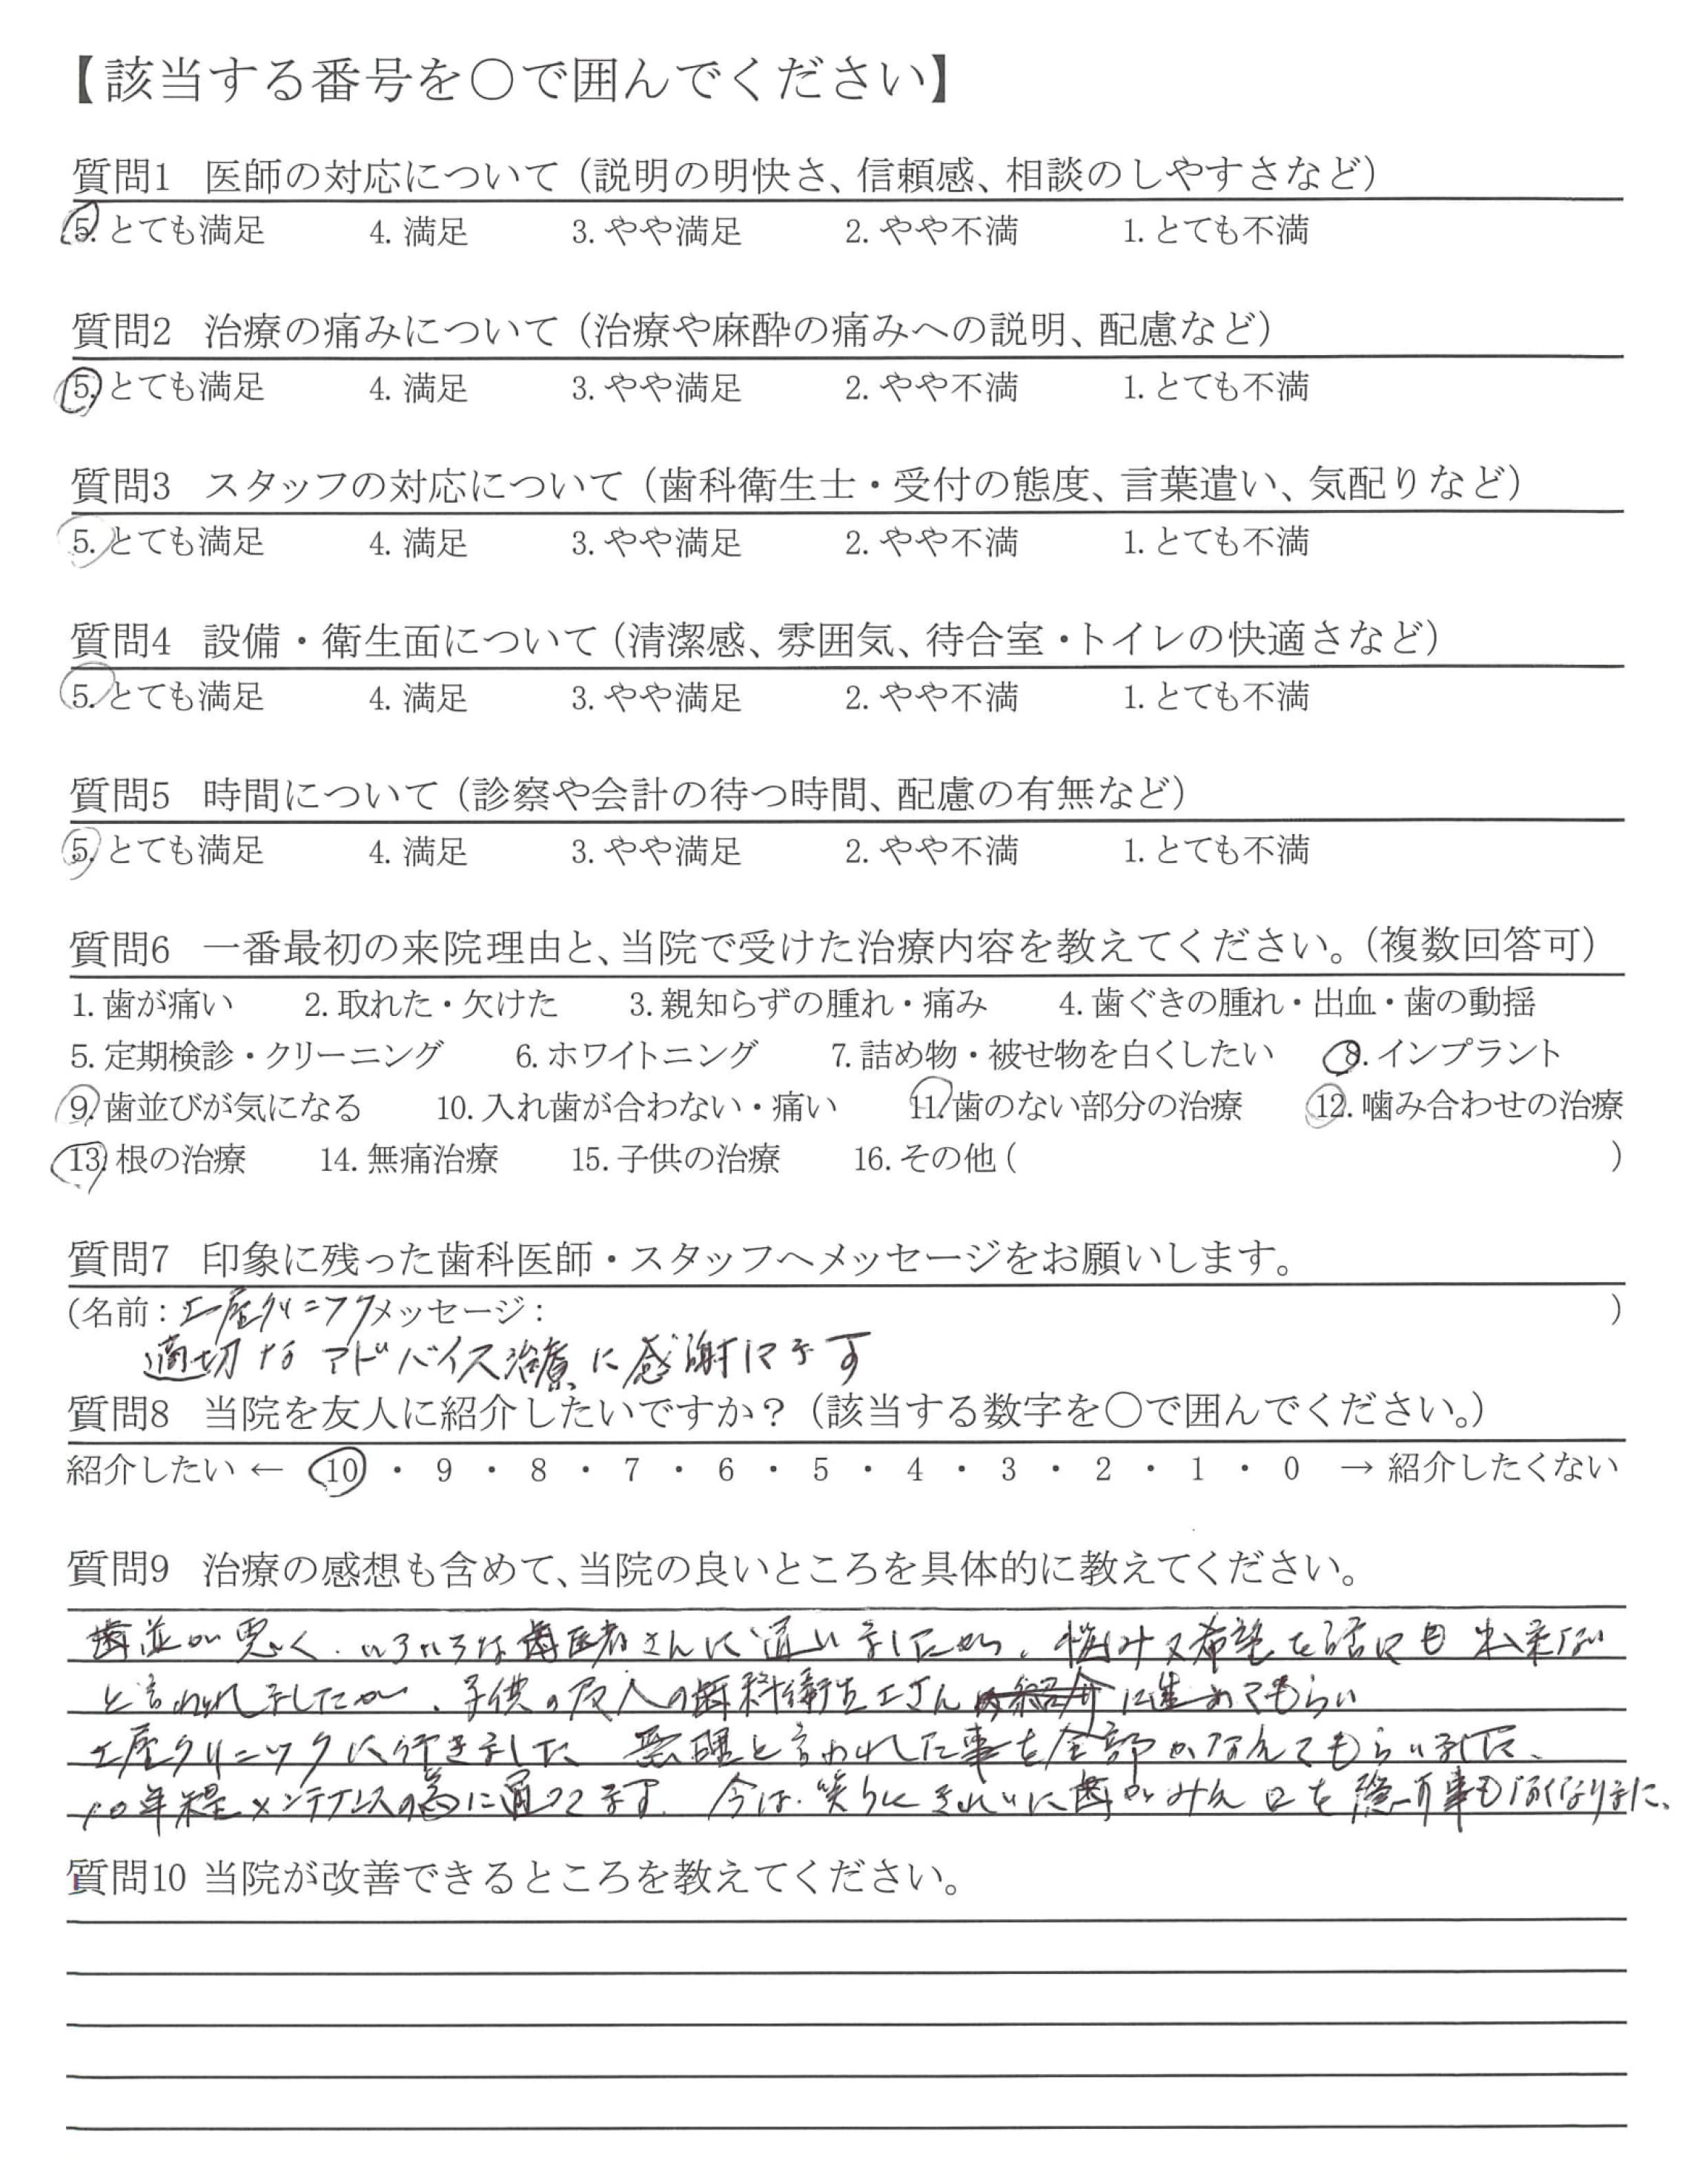 【該当する番号を○で囲んでください】
質問1 医師の対応について（説明の明快さ、信頼感、相談のしやすさなど）
5. とても満足 4. 満足 3. やや満足 2. やや不満 1. とても不満
質問2 治療の痛みについて（治療や麻酔の痛みへの説明、配慮など）
5. とても満足 4. 満足 3. やや満足 2. やや不満 1. とても不満
質問3 スタッフの対応について（歯科衛生士・受付の態度、言葉遣い、気配りなど）
5. とても満足 4. 満足 3. やや満足 2. やや不満 1. とても不満
質問4 設備・衛生面について（清潔感、雰囲気、待合室・トイレの快適さなど）
5. とても満足 4. 満足 3. やや満足 2. やや不満 1. とても不満
質問5 時間について（診察や会計の待つ時間、配慮の有無など）
5. とても満足 4. 満足 3. やや満足 2. やや不満 1. とても不満
質問6 一番最初の来院理由と、当院で受けた治療内容を教えてください。（複数回答可）
1. 歯が痛い 2. 取れた・欠けた 3. 親知らずの腫れ・痛み 4. 歯ぐきの腫れ・出血・歯の動揺
5. 定期検診・クリーニング 6. ホワイトニング 7. 詰め物・被せ物を白くしたい 8. インプラント
9. 歯並びが気になる 10. 入れ歯が合わない・痛い 11. 歯のない部分の治療 12. 噛み合わせの治療
13. 根の治療 14. 無痛治療 15. 子供の治療 16. その他（ ）
質問7 印象に残った歯科医師・スタッフへメッセージをお願いします。
（名前： クリニック メッセージ： ）
適切なアドバイス治療に感謝してます
質問8 当院を友人に紹介したいですか？（該当する数字を○で囲んでください。）
紹介したい ← 10 ・ 9 ・ 8 ・ 7 ・ 6 ・ 5 ・ 4 ・ 3 ・ 2 ・ 1 ・ 0 → 紹介したくない
質問9 治療の感想も含めて、当院の良いところを具体的に教えてください。
歯並が悪く、いろいろな歯医者さんに通いましたが、悩み又希望を話しても出来ない
と言われましたが、子供の友人の歯科衛生士さん に進めてもらい
クリニックに行きました 無理と言われた事を全部かなえてもらいました、
10年程メンテナンスの為に通ってます。今は、笑うときれいに歯が 口を隠す事もなくなりました、
質問10 当院が改善できるところを教えてください。